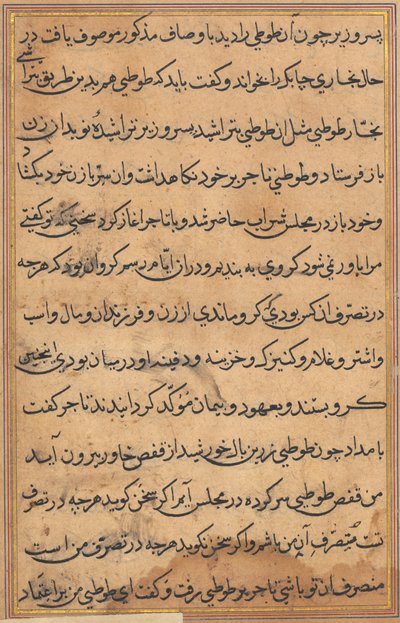 پسر وزیر چون آن طوطی را دید باوصاف مذکور موصوف یافت در
حال نجاری چابک را بخواند و کفت باید که طوطی هم بدین طریق بتراشی
نجار طوطی مثل ان طوطی بتراشید پسر وزیر تراشیدهٔ نو بدان زن
باز فرستاد و طوطی تاجر بر خود نکاهداشت وان سر با زن خود بکشاد
وخود باز در مجلس شراب حاضر شد و با تاجر اغاز کرد سخنی که تو کفتی
مرا باور نمی شود کروی به بندیم ودران ایام رسم کرو ان بود که هرچه
در تصرف ان کس بودی کرو ماندی از زن و فرزندان و مال واسب
واشتر و غلام و کنیزک و خزینه و دفینه او در میان بودی انچنین
کرو بستند و بعهود و پیمان مؤکد کردانیدند تاجر کفت
بامداد چون طوطی زرین بال خورشید از قفص خاور بیرون آید
من قفص طوطی سر کرده در مجلس آیم اکر سخن کوید هرچه در تصرف
تست متصرف آن من باشم واکر سخن نکوید هرچه در تصرف من است
متصرف ان تو باشی تاجر بر طوطی رفت و کفت ای طوطی من بر اعتماد